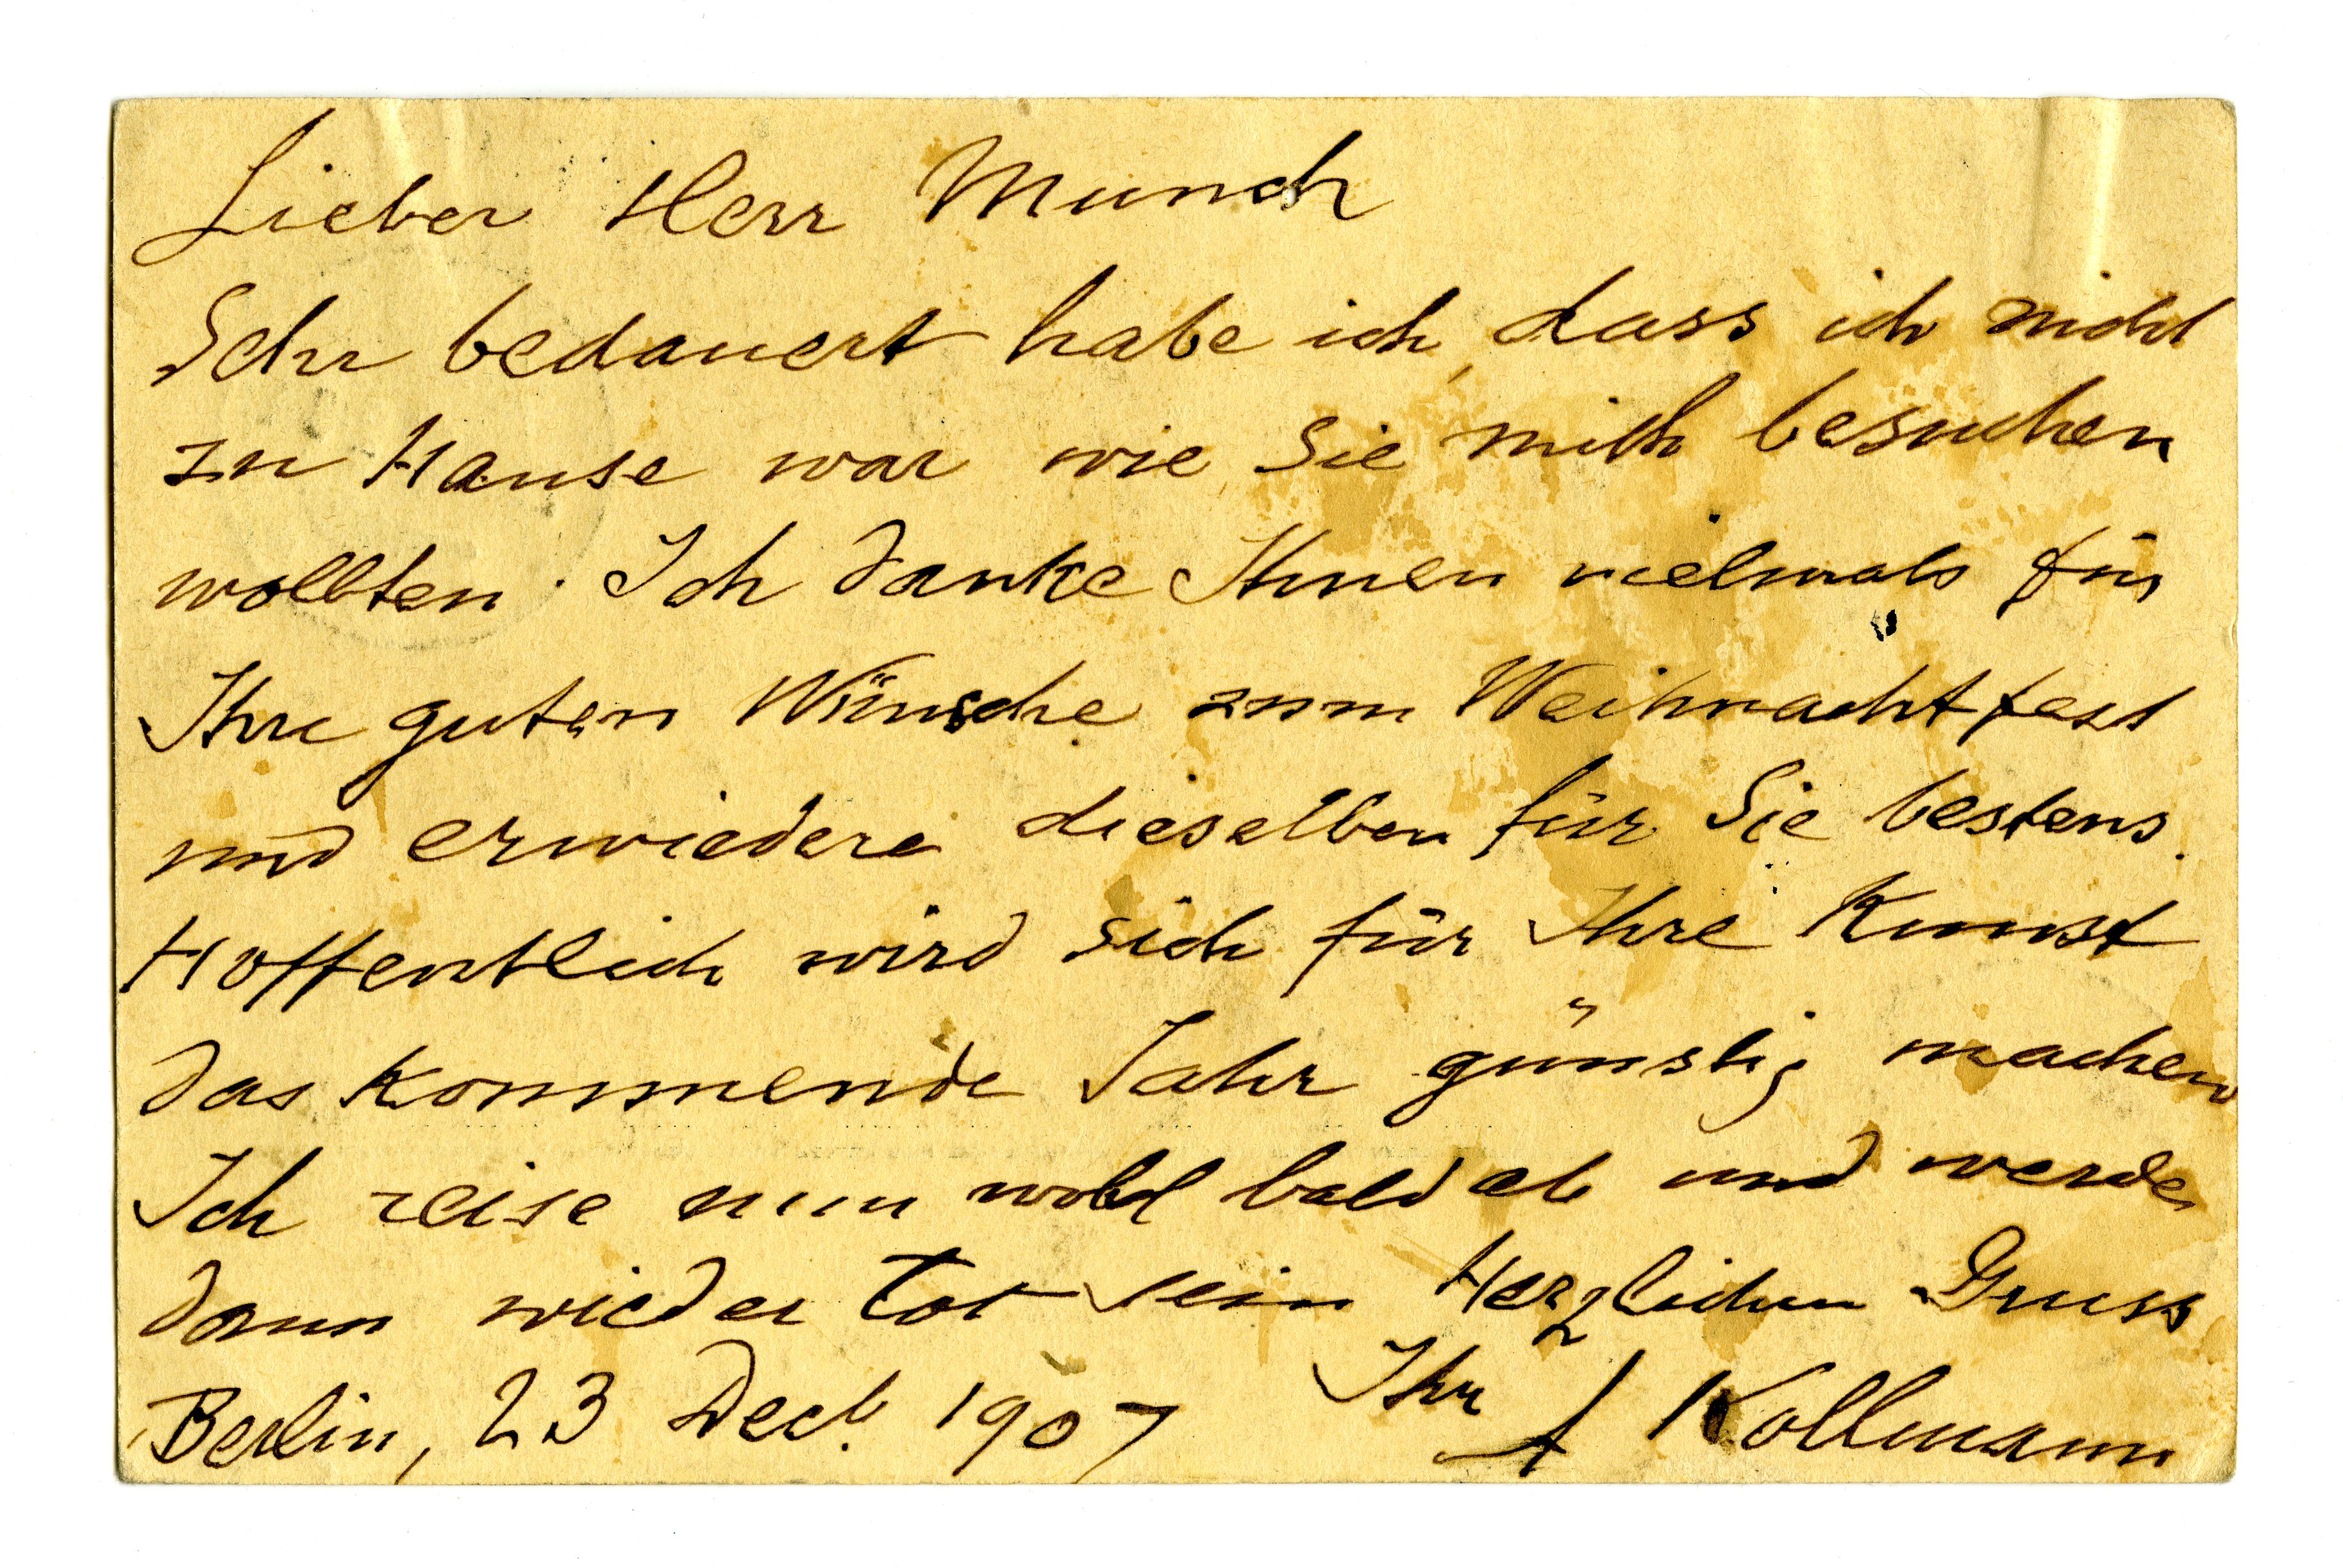 Lieber Herr Munch
Sehr bedauert habe ich, dass ich nicht
zu Hause war wie Sie mich besuchen
wollten. Ich danke Ihnen vielmals für
Ihre guten Wünsche zum Weihnachtfest
und erwiedere dieselben für Sie bestens.
Hoffentlich wird sich für Ihre Kunst
das kommende Jahr günstig machen
Ich reise nun wohl bald ab und werde
dann wieder tot sein Herzlichen Gruss
Ihr
Berlin, 23 Decb. 1907 A Kollmann